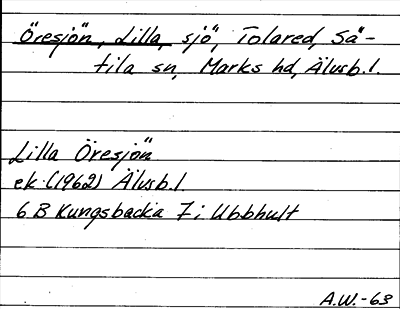 Öresjön, Lilla, sjö, Tolared, Sä-
tila sn, Marks hd, Älvsb. l.
Lilla Öresjön
ek. (1962) Älvsb. l.
6 B Kungsbacka 7 i Ubbhult
A.W.-63